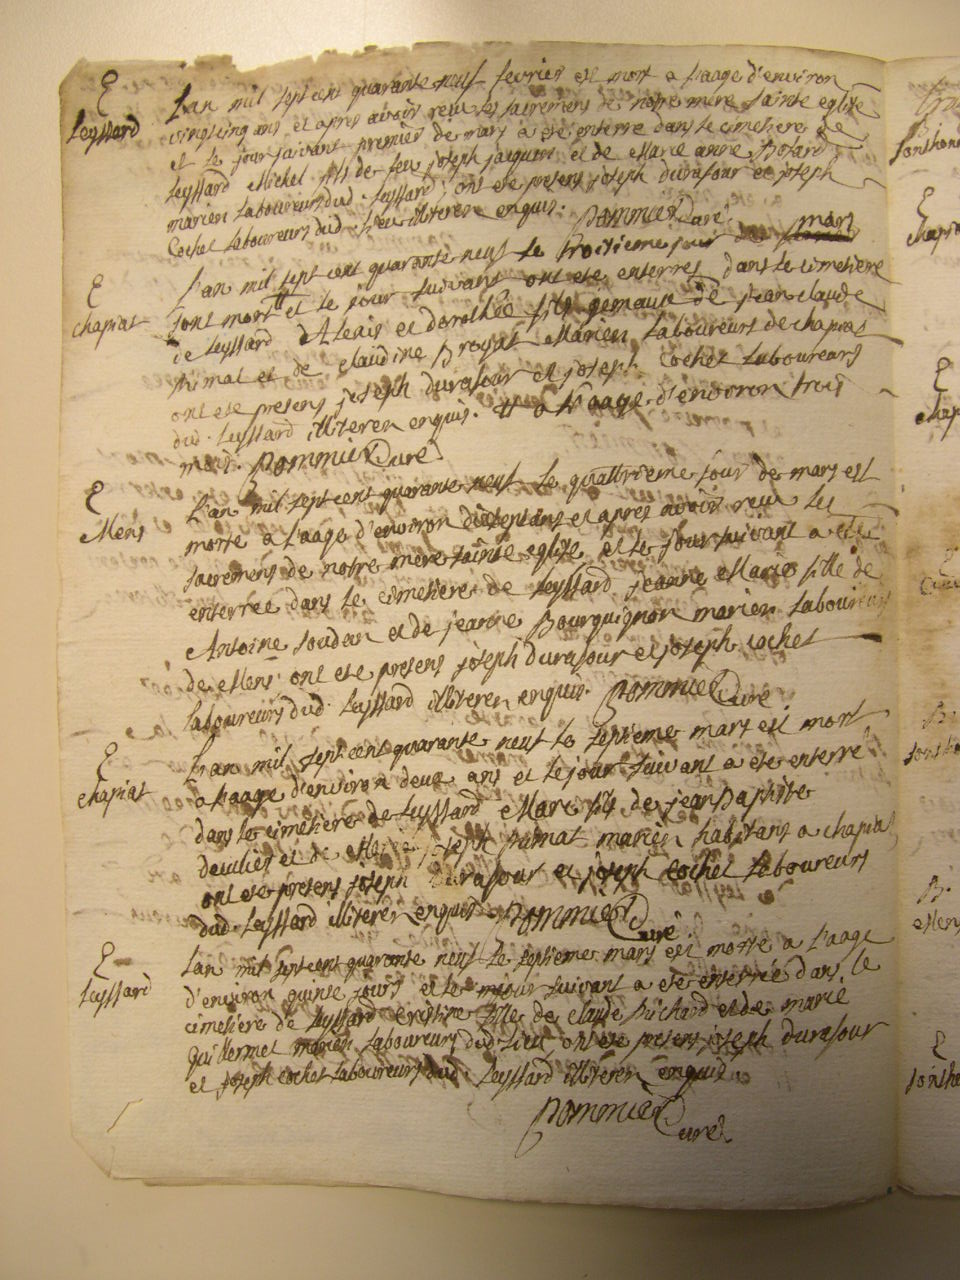 E
Leyssard
L'an mil sept cent quarante neuf fevrier est mort a l'aage d'environ
vingt cinq ans et apres avoir reçu les sacremens de notre mere sainte eglise
et le jour suivant premier de mars a ete enterre dans le cimetiere de
Leyssard Michel fils de feu joseph jacquin et de Marie anne
mariers Laboureurs dud. Leyssard, ont ete presens joseph durafour et joseph
Cochet Laboureurs dud lieu illiterer enquis. Pommier Curé
E
chapiat
L'an mil sept cent quarante neuf le troisieme jour de mars
sont mort # et le jour suivant ont ete enterres dans le cimetiere
de Leyssard Alexis et dorothée fils gemaux de jean claude
et de claudine Broyat Marien Laboureurs de chapiat
ont ete presens joseph durafour et joseph Cochet Laboureurs
dud. Leyssard illiterer enquis. # a l'aage d'environ trois
mois. Pommier Curé
E
Mens
L'an mil sept cent quarante neuf le quattrieme jour de mars est
morte a l'aage d'environ dixsept ans et apres avoir reçu les
sacremens de notre mere sainte eglise et le jour suivant a ete
enterrée dans le cimetiere de Leyssard jeanne Marie fille de
Antoine Soudan et de jeanne Bourguignon marien Laboureurs
de Mens ont ete presens joseph durafour et joseph cochet
laboureurs dud. Leyssard illiterer enquis. Pommier Curé
E
chapiat
L'an mil sept cent quarante neuf le septieme mars est mort
a l'aage d'environ deux ans et le jour suivant a ete enterré
dans le cimetiere de Leyssard Marc fils de jean Baptiste
et de joseph marien habitans a chapiat
ont ete presens joseph Durafour et joseph Cochet Laboureurs
dud. Leyssard illiterer enquis Pommier Curé
E
Leyssard
L'an mil sept cent quarante neuf le septieme mars est morte a l'aage
d'environ quinse jours et le jour suivant a ete enterrée dans le
cimetiere de Leyssard cristine fille de claude Richard et de marie
Guillermet marien Laboureurs dud. Lieu, ont ete presens joseph durafour
et joseph cochet Laboureurs dud. Leyssard illiterer enquis.
Pommier Curé